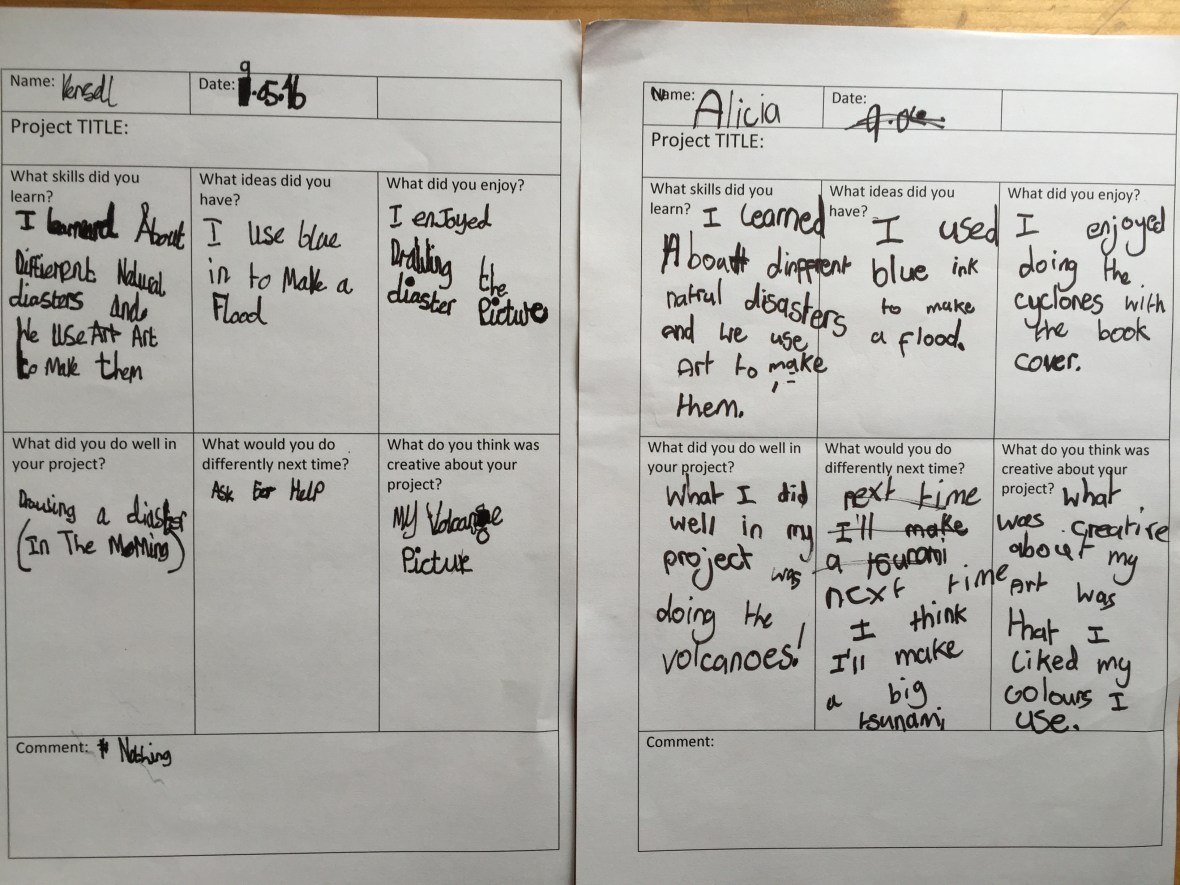 Name: Kensell
Date: 9.05.16
Project TITLE:
What skills did you
learn?
I learned About
Different Natural
diasters and
We Use Art Art
to Make them
What ideas did you
have?
I use blue
in to Make a
Flood
What did you enjoy?
I enJoyed
Drawing the
diaster Picture
What did you do well in
your project?
Drawing a diaster
(In The Morning)
What would you do
differently next time?
Ask For Help
What do you think was
creative about your
project?
My Volcanoe
Picture
Comment: Nothing
Name: Alicia
Date:
Project TITLE:
What skills did you
learn? I learned
About dinfferent
natral disasters
and we use
Art to make
them.
What ideas did you
have? I used
blue ink
to make
a flood.
What did you enjoy?
I enjoyed
doing the
cyclones with
the book
cover.
What did you do well in
your project?
What I did
well in my
project was
doing the
volcanoes!
What would you do
differently next time?
next time
I'll make
a tsunami
next time
I think
I'll make
a big
tsunami
What do you think was
creative about your
project? what
was creative
about my
Art was
that I
liked my
colours I
use.
Comment: